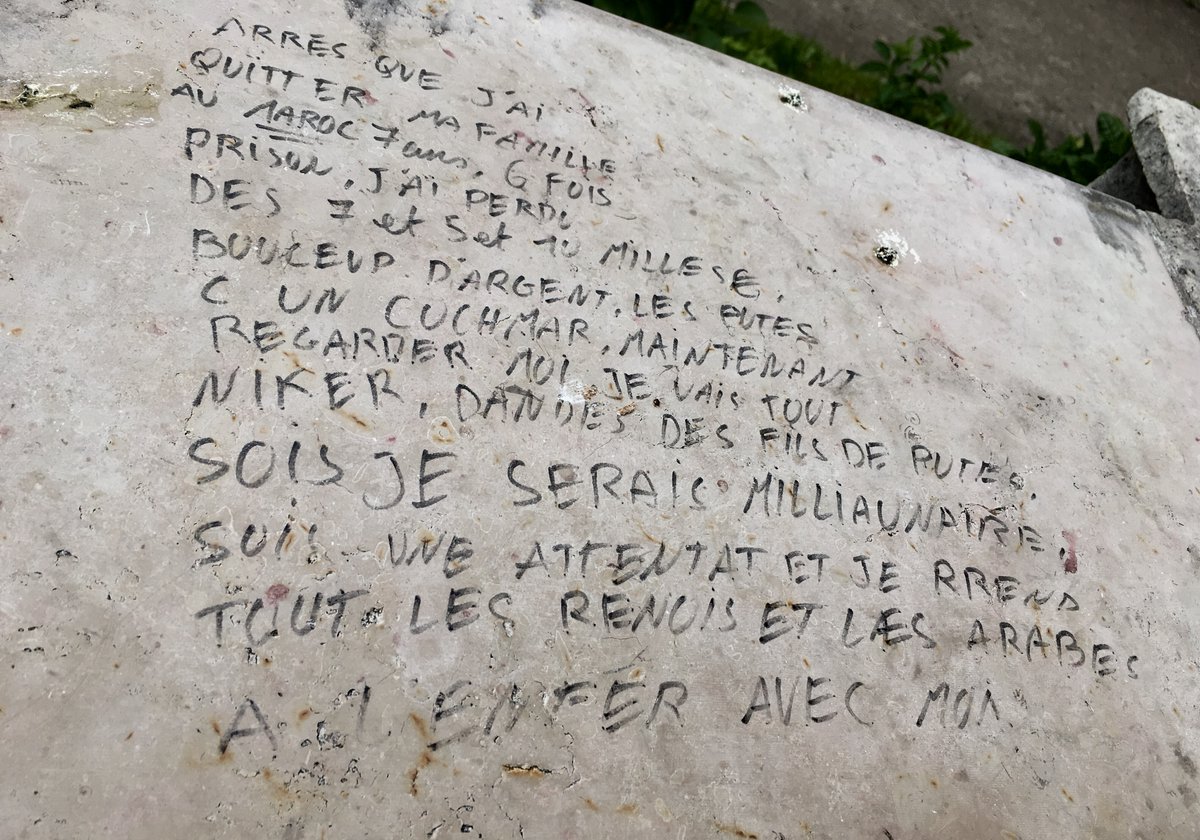 ARRES QUE J'AI
QUITTER MA FAMILLE
AU MAROC 7 ans. 6 FOIS
PRISON. J'AI PERDU
DES 7 et 5 et 10 MILLESE.
BOUCEUP D'ARGENT. LES PUTES
C UN CUCHMAR. MAINTENANT
REGARDER MOI. JE VAIS TOUT
NIKER. DES FILS DE PUTES.
SOIS JE SERAIS MILLIAUNAIRE.
SOIS UNE ATTENTAT ET JE RREND
TOUT LES RENOIS ET LES ARABES
A L'ENFER AVEC MOI